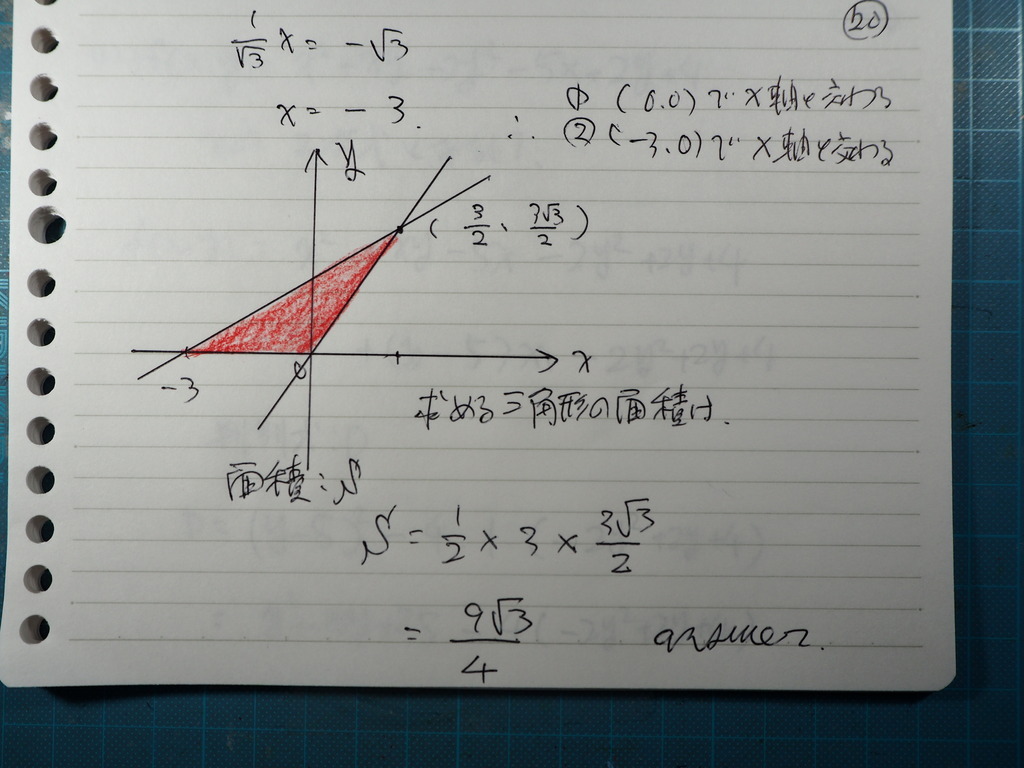 ⑳
1/√3 x = -√3
x = -3.
① (0.0) で x 軸と交わる
∴ ② (-3.0) で x 軸と交わる
y
(3/2、3√3/2)
-3 0 x
求める三角形の面積は.
面積:S
S = 1/2 × 3 × 3√3/2
= 9√3/4 answer.